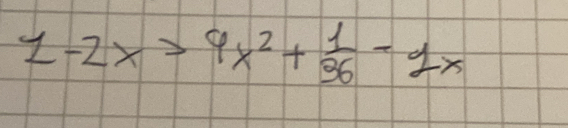 1-2x > 9x² + 1/36 - 1x